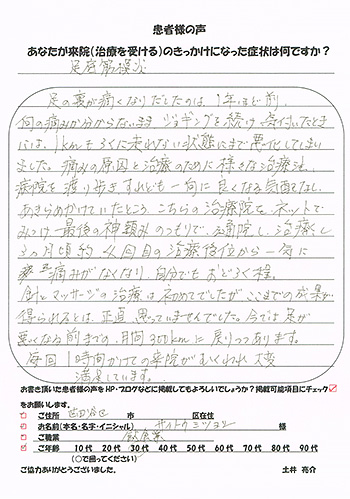 患者様の声
あなたが来院(治療を受ける)のきっかけになった症状は何ですか?
足底筋膜炎
足の裏が痛くなりだしたのは、1年ほど前、
何の痛みか分からないまま ジョギングを続け 気付いたとき
には、1kmもろくに走れない状態にまで悪化してしまい
ました。痛みの原因と治療のために様々な治療法、
病院を渡り歩きすれども一向に良くなる気配もなし、
あきらめかけていたところ こちらの治療院をネットで
みつけ 最後の神頼みのつもりで、通院し、治療し
3ヵ月頃 約 回目の治療後位から一気に
痛みがなくなり、自分でも おどろく程。
針とマッサージの治療は 初めてでしたが、ここまでの成果が
得られるとは、正直 思っていませんでした。今では足が
悪くなる前までの、月間300kmに戻りつつあります。
毎回 1時間かけての来院が むくわれ 大変
満足しています。
お書き頂いた患者様の声をHP・ブログなどに掲載してもよろしいでしょうか?掲載可能項目にチェック
をお願いします。
ご住所 市 区在住
お名前(本名・名字・イニシャル) サイトウ ミツヨシ 様
ご職業 飲食業
ご年齢 10代 20代 30代 40代 50代 60代 70代 80代 90代
(○で囲ってください)
ご協力ありがとうございました。 土井 亮介